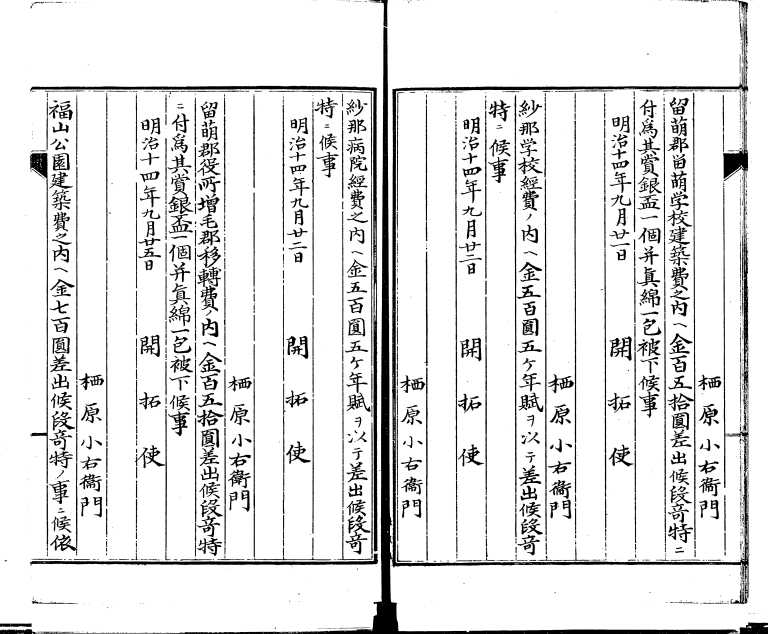 栖原小右衛門
留萌郡留萌学校建築費之内ヘ金百五拾圓差出候段竒特ニ
付爲其賞銀盃一個并眞綿一包被下候事
明治十四年九月廿一日　開拓使
栖原小右衛門
紗那学校経費ノ内ヘ金五百圓五ケ年賦ヲ以テ差出候段竒
特ニ候事
明治十四年九月廿二日　開拓使
栖原小右衛門
紗那病院經費之内ヘ金五百圓五ケ年賦ヲ以テ差出候段竒
特ニ候事
明治十四年九月廿二日　開拓使
栖原小右衛門
留萌郡役所増毛郡移轉費ノ内ヘ金百五拾圓差出候段竒特
ニ付爲其賞銀盃一個并眞綿一包被下候事
明治十四年九月廿五日　開拓使
栖原小右衛門
福山公園建築費之内ヘ金七百圓差出候段竒特ノ事ニ候依